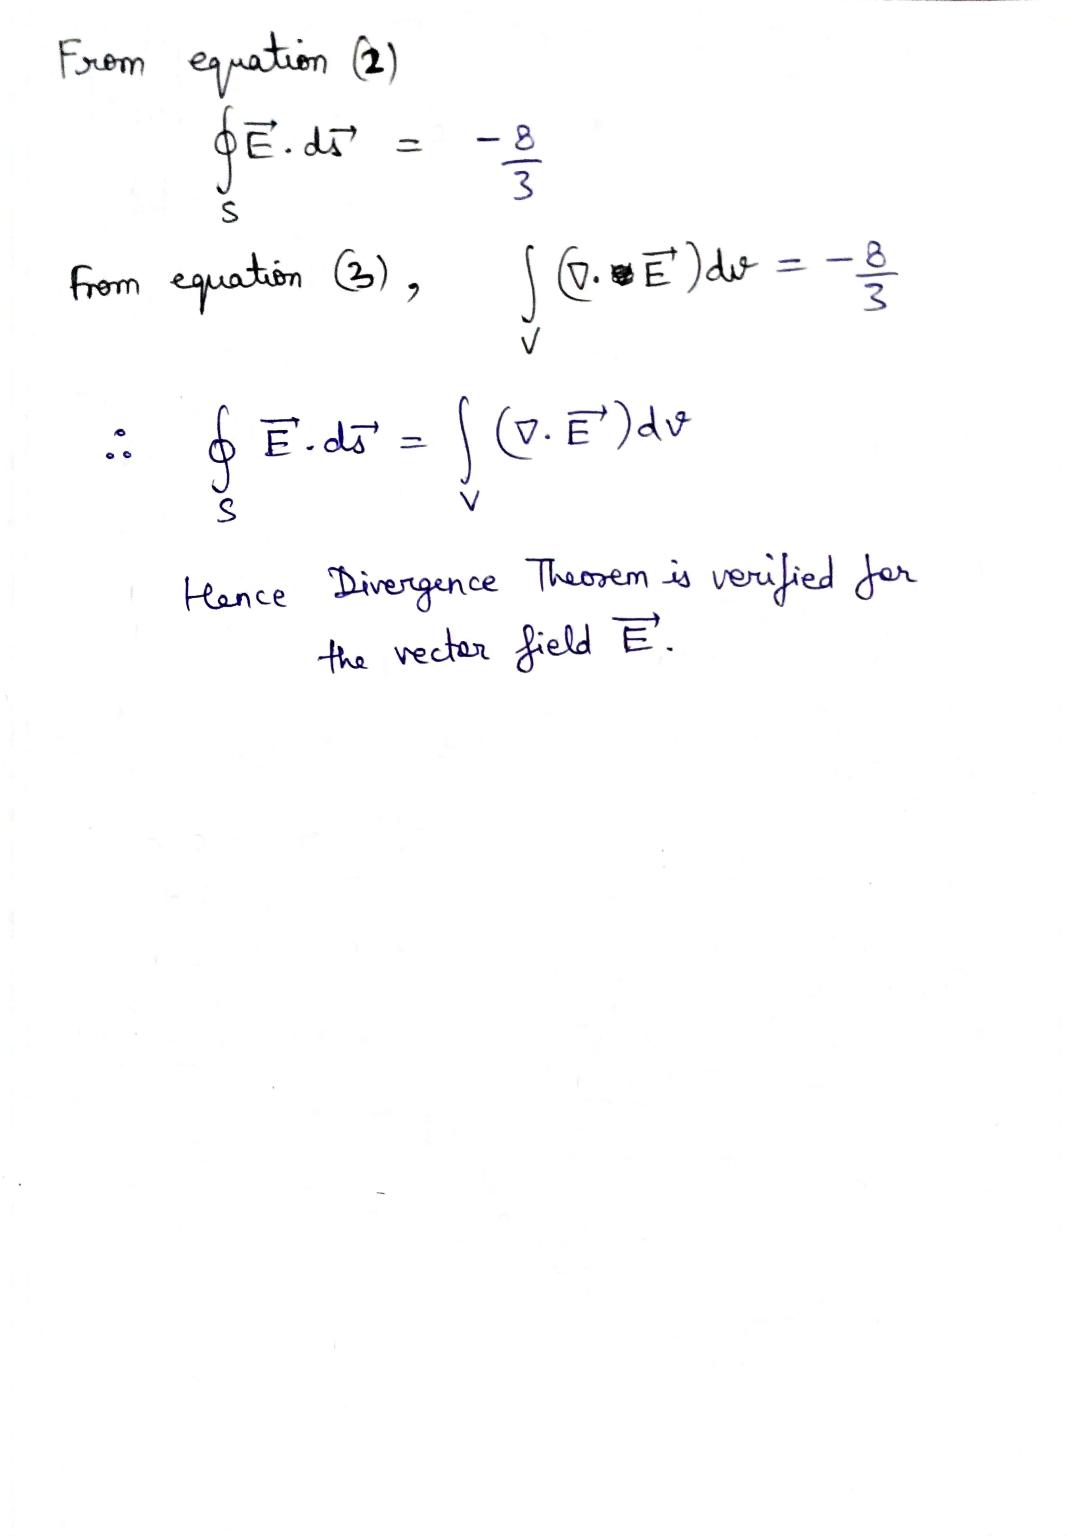 From equation (2)
∮_S E⃗ . ds⃗ = -8/3
From equation (3), ∫_V (∇. E⃗) dv = -8/3
∴ ∮_S E⃗ . ds⃗ = ∫_V (∇. E⃗) dv
Hence Divergence Theorem is verified for
the vector field E⃗.